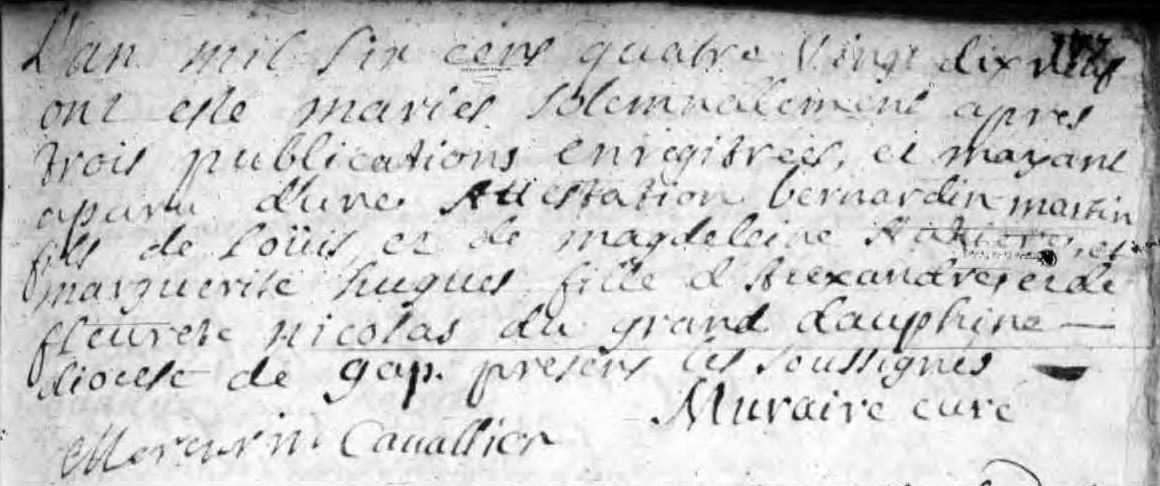 L'an mil six cens quatre Vingt dix neuf
ont esté mariés solemnalement apres
trois publications enregitrees, et mayant
aparu d'une Attestation bernardin martin
fils de Loüis, et de magdeleine et
marguerite hugues fille d'Alexandres et de
fleurete nicolas du grand dauphine —
diocese de gap. presens les soussignés
Muraire curé
Mercurin Cauallier